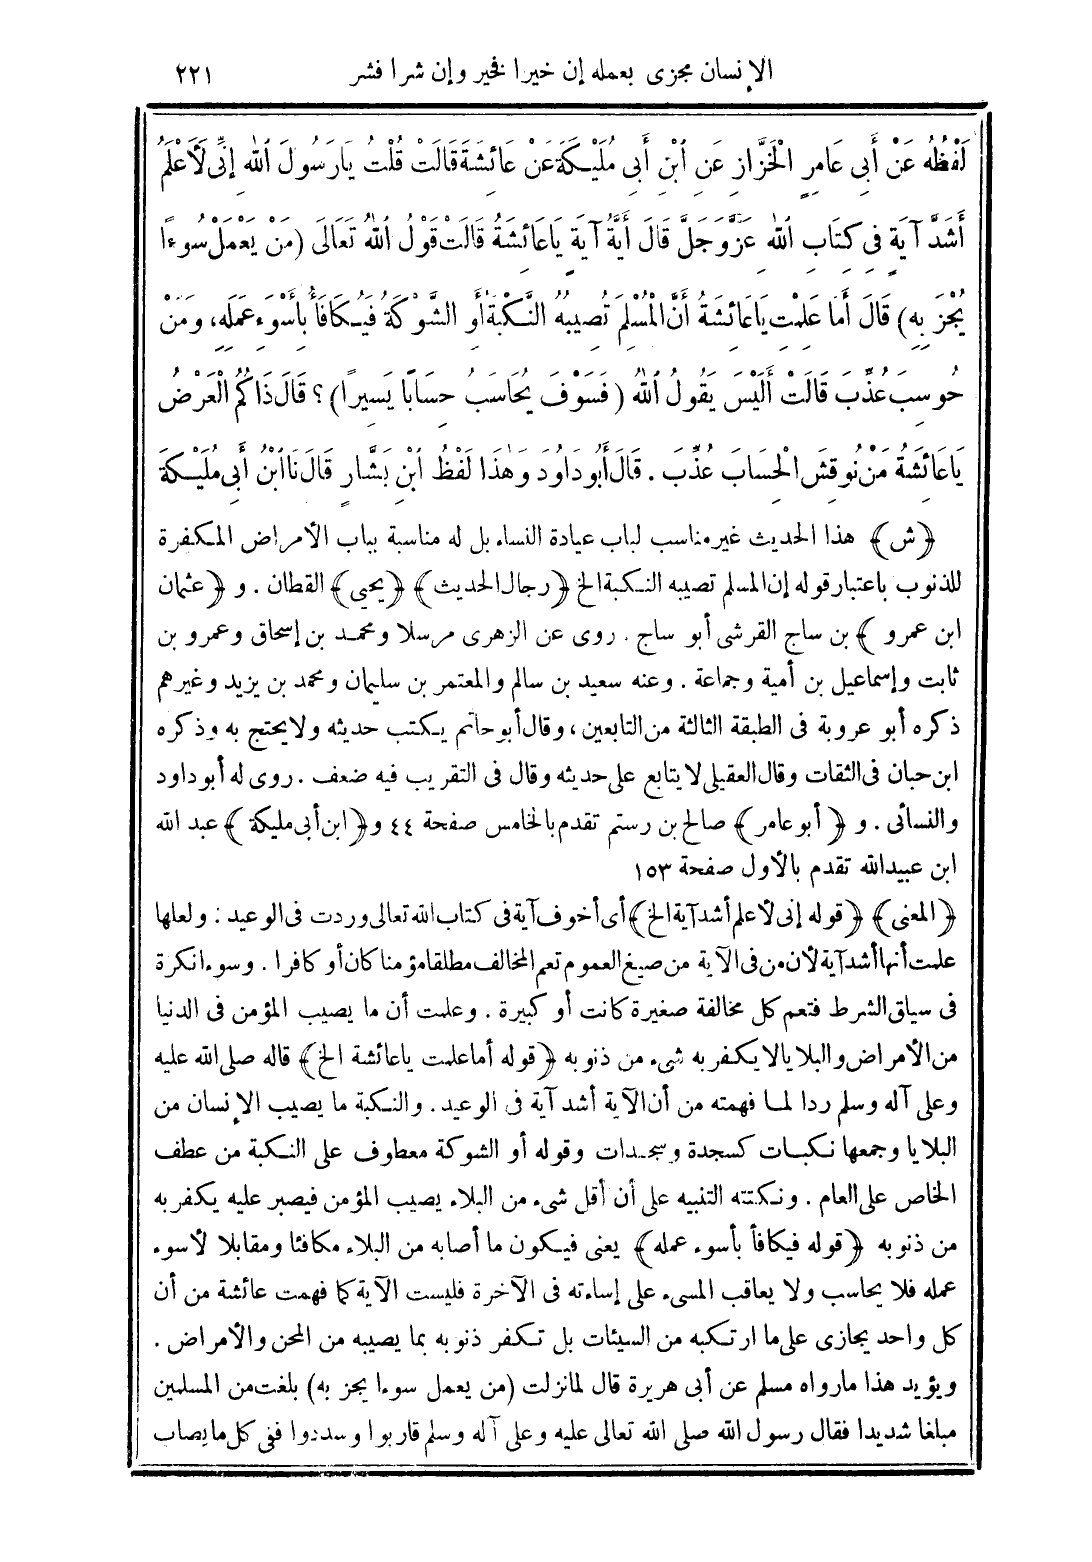 الإنسان مجزى بعمله إن خيرا فخير وإن شرا فشر ٢٢١
لَفْظُهُ عَنْ أَبِي عَامِرٍ الْخَزَّازِ عَنِ ابْنِ أَبِي مُلَيْكَةَ عَنْ عَائِشَةَ قَالَتْ قُلْتُ يَارَسُولَ اللهِ إِنِّي لَأَعْلَمُ
أَشَدَّ آيَةٍ فِي كِتَابِ اللهِ عَزَّوَجَلَّ قَالَ أَيَّةُ آيَةٍ يَاعَائِشَةُ قَالَتْ قَوْلُ اللهُ تَعَالَى (مَنْ يَعْمَلْ سُوءًا
يُجْزَ بِهِ) قَالَ أَمَا عَلِمْتِ يَاعَائِشَةُ أَنَّ الْمُسْلِمَ تُصِيبُهُ النَّكْبَةُ أَوِ الشَّوْكَةُ فَيُكَافَأُ بِأَسْوَءِ عَمَلِهِ، وَمَنْ
حُوسِبَ عُذِّبَ قَالَتْ أَلَيْسَ يَقُولُ اللهُ (فَسَوْفَ يُحَاسَبُ حِسَابًا يَسِيرًا)؟ قَالَ ذَاكُمُ الْعَرْضُ
يَاعَائِشَةُ مَنْ نُوقِشَ الْحِسَابَ عُذِّبَ . قَالَ أَبُو دَاوُدَ وَهٰذَا لَفْظُ ابْنِ بَشَّارٍ قَالَ نَا ابْنُ أَبِي مُلَيْكَةَ
﴿ش﴾ هذا الحديث غير مناسب لباب عيادة النساء بل له مناسبة بباب الأمراض المكفرة
للذنوب باعتبار قوله إن المسلم تصيبه النكبة الخ ﴿رجال الحديث﴾ ﴿يحيى﴾ القطان . و ﴿عثمان
ابن عمرو﴾ بن ساج القرشى أبو ساج . روى عن الزهرى مرسلا ومحمد بن إسحاق وعمرو بن
ثابت وإسماعيل بن أمية وجماعة . وعنه سعيد بن سالم والمعتمر بن سليمان ومحمد بن يزيد وغيرهم
ذكره أبو عروبة فى الطبقة الثالثة من التابعين، وقال أبو حاتم يكتب حديثه ولا يحتج به وذكره
ابن حبان فى الثقات وقال العقيلى لا يتابع على حديثه وقال فى التقريب فيه ضعف . روى له أبو داود
والنسأى . و ﴿أبو عامر﴾ صالح بن رستم تقدم بالخامس صفحة ٤٤ و ﴿ابن أبى مليكة﴾ عبد الله
ابن عبيد الله تقدم بالأول صفحة ١٥٣
﴿المعنى﴾ ﴿قوله إنى لأعلم أشد آية الخ﴾ أى أخوف آية فى كتاب الله تعالى وردت فى الوعيد : ولعلها
علمت أنها أشد آية لأن من فى الآية من صيغ العموم تعم المخالف مطلقا مؤمنا كان أو كافرا . وسوءا نكرة
فى سياق الشرط فتعم كل مخالفة صغيرة كانت أو كبيرة . وعلمت أن ما يصيب المؤمن فى الدنيا
من الأمراض والبلايا لا يكفر به شىء من ذنوبه ﴿قوله أما علمت ياعائشة الخ﴾ قاله صلى الله عليه
وعلى آله وسلم ردا لما فهمته من أن الآية أشد آية فى الوعيد . والنكبة ما يصيب الإنسان من
البلايا وجمعها نكبات كسجدة وسجدات وقوله أو الشوكة معطوف على النكبة من عطف
الخاص على العام . ونكتته التنبيه على أن أقل شىء من البلاء يصيب المؤمن فيصبر عليه يكفر به
من ذنوبه ﴿قوله فيكافأ بأسوء عمله﴾ يعنى فيكون ما أصابه من البلاء مكافئا ومقابلا لأسوء
عمله فلا يحاسب ولا يعاقب المسىء على إساءته فى الآخرة فليست الآية كما فهمت عائشة من أن
كل واحد يجازى على ما ارتكبه من السيئات بل تكفر ذنوبه بما يصيبه من المحن والأمراض .
ويؤيد هذا مارواه مسلم عن أبى هريرة قال لما نزلت (من يعمل سوءا يجز به) بلغت من المسلمين
مبلغا شديدا فقال رسول الله صلى الله تعالى عليه وعلى آله وسلم قاربوا وسددوا ففى كل ما يصاب